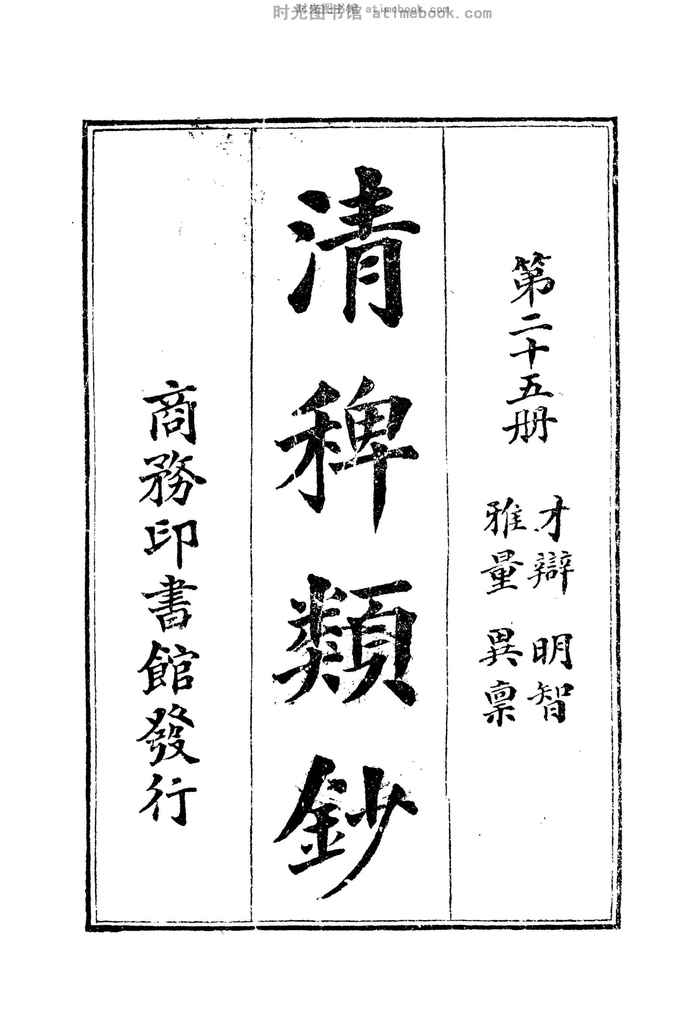 时光图书馆 atimebook.com
时光图书馆 atimebook.com
第二十五册
才辯 明智
雅量 異稟
清稗類鈔
商務印書館發行